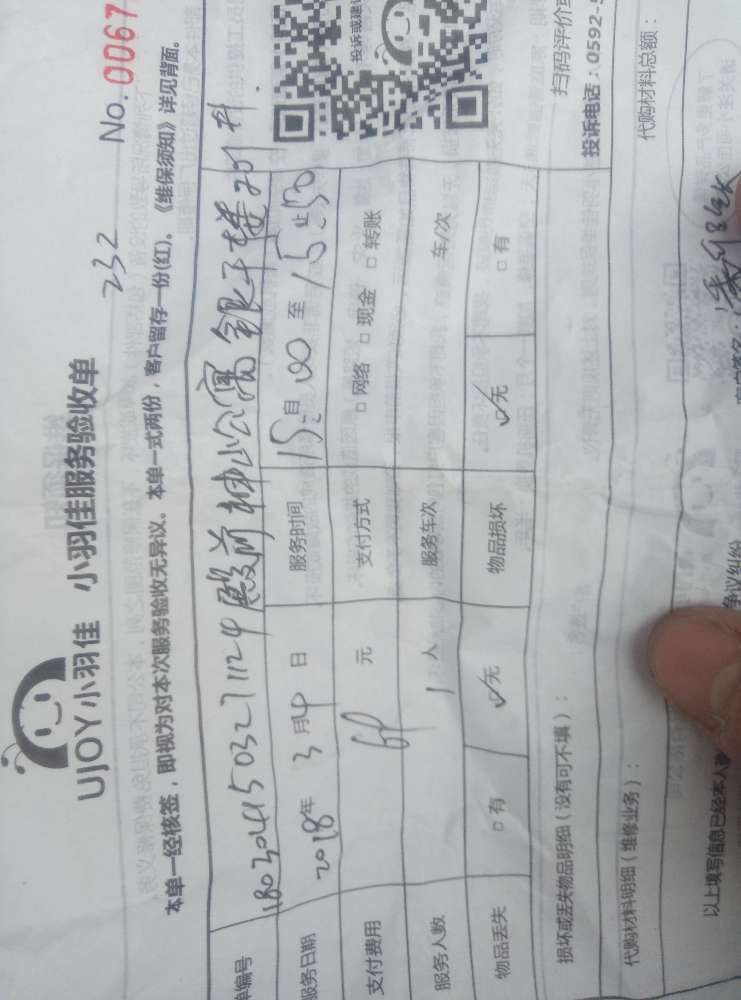 UJOY小羽佳 小羽佳服务验收单
232
No. 0067
本单一经核签，即视为对本次服务验收无异议。本单一式两份，客户留存一份(红)。《维保须知》详见背面。
单编号 1803041503271124 殿前神山公寓 银子楼201
服务日期 2018年 3月4日 服务时间 15:00 自 至 15:50 止
支付费用 元 支付方式 □网络 □现金 □转账
服务人数 1 人 服务车次 车/次
物品丢失 □有 ✓无 物品损坏 ✓无 □有
投诉或建
扫码评价或
投诉电话：0592-5
损坏或丢失物品明细（没有可不填）：
代购材料明细（维修业务）： 代购材料总额：
以上填写信息已经本人
争议纠纷
客户签名：